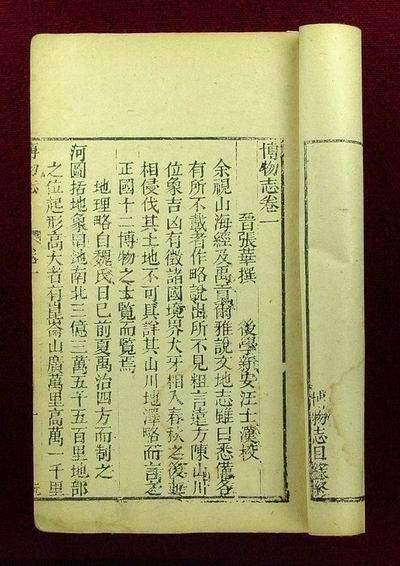 博物志目錄終
博物志卷一
晉張華撰
後學新安汪士漢校
余視山海經及禹貢爾雅說文地志雖曰悉備各
有所不載者作略說出所不見粗言遠方陳山川
位象吉凶有徵諸國境界犬牙相入春秋之後並
相侵伐其土地不可具詳其山川地澤略而言之
正國十二博物之士覽而覽焉
地理略自魏氏日已前夏禹治四方而制之
河圖括地象曰地南北三億三萬五千五百里地部
之位起形高大者有崑崙山廣萬里高萬一千里
博物志